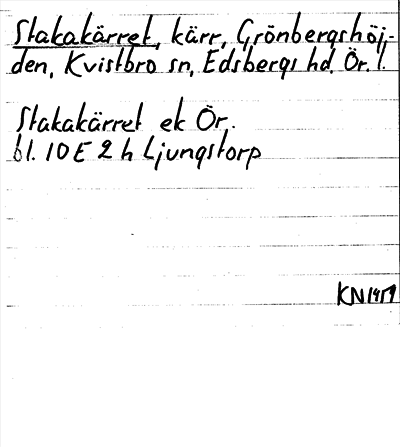 Stakakärret, kärr, Grönbergshöj-
den, Kvistbro sn, Edsbergs hd, Ör. l.
Stakakärret ek Ör.
bl. 10 E 2 h Ljungstorp
KN